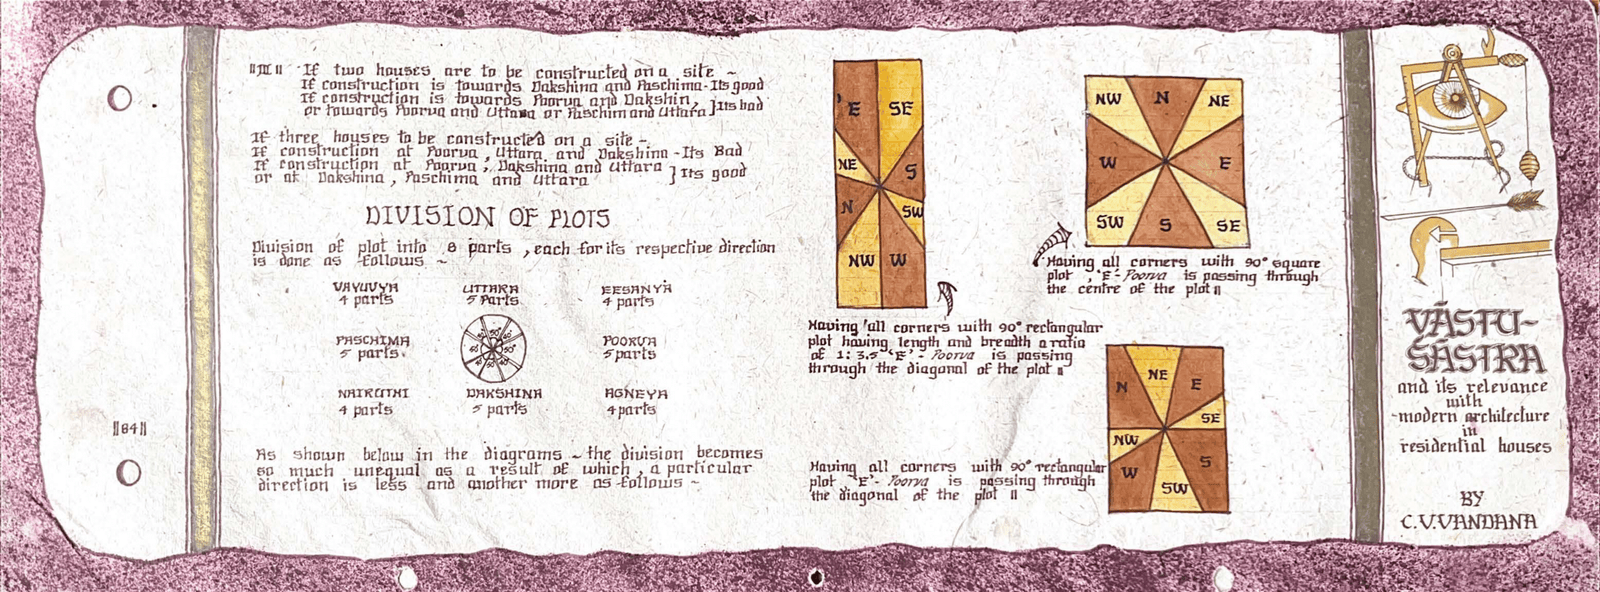 "III" If two houses are to be constructed on a site ~
If construction is towards Dakshina and Paschima - Its good
If construction is towards Poorva and Dakshin,
or towards Poorva and Uttara or Paschim and Uttara } Its bad
If three houses to be constructed on a site ~
If construction at Poorva, Uttara, and Dakshina - Its Bad
If construction at Poorva, Dakshina and Uttara
or at Dakshina, Paschima and Uttara } Its good
DIVISION OF PLOTS
Division of plot into 8 parts, each for its respective direction
is done as follows ~
VAYUVYA UTTARA EESANYA
4 parts 5 parts 4 parts
PASCHIMA POORVA
5 parts. 5 parts
NAIRUTHI DAKSHINA AGNEYA
4 parts 5 parts 4 parts
As shown below in the diagrams ~ the division becomes
so much unequal as a result of which, a particular
direction is less and another more as follows ~
||84||
'E SE
NE S
N SW
NW W
Having all corners with 90° rectangular
plot having length and breadth a ratio
of 1:3.5 'E' - Poorva is passing
through the diagonal of the plot ||
NW N NE
W E
SW S SE
Having all corners with 90° square
plot, 'E - Poorva is passing through
the centre of the plot ||
N NE E
SE
NW
W SW S
Having all corners with 90° rectangular
plot 'E' - Poorva is passing through
the diagonal of the plot ||
VĀSTU-
SĀSTRA
and its relevance
with
modern architecture
in
residential houses
BY
C.V.VANDANA